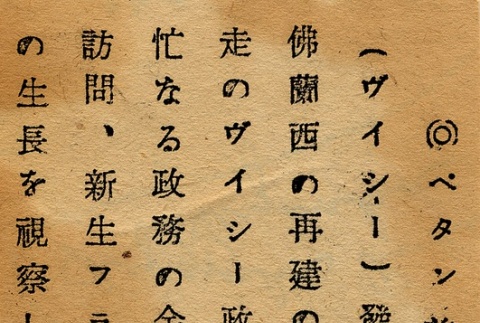 ◎ペタン
(ヴイシー)發
佛蘭西の再建の
走のヴイシー政
忙なる政務の余
訪問、新生フラ
の生長を視察し